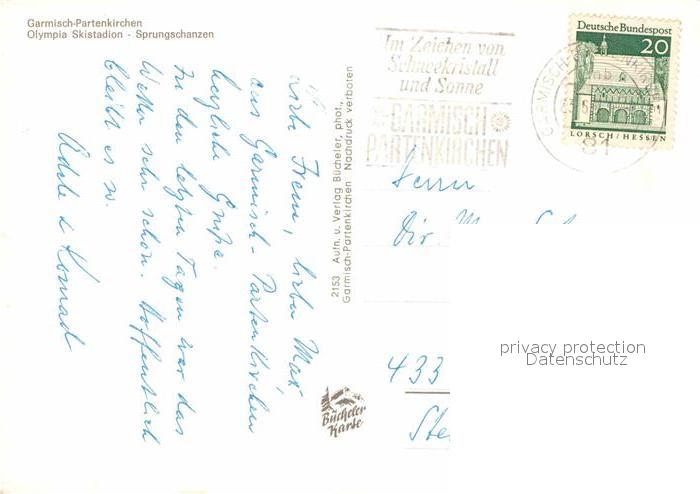 Garmisch-Partenkirchen
Olympia Skistadion - Sprungschanzen
Liebe Freni, lieber Max
aus Garmisch-Partenkirchen
herzliche Grüße.
In den letzten Tagen war das
Wetter sehr schön. Hoffentlich
bleibt es so.
Adele & Konrad
2153 Aufn. u. Verlag Bücheler, phot.,
Garmisch-Partenkirchen - Nachdruck verboten
Bücheler
Karte
Im Zeichen von
Schneekristall
und Sonne
GARMISCH
PARTENKIRCHEN
GARMISCH-
81
Deutsche Bundespost
20
LORSCH/HESSEN
Herrn
Dir.
433
privacy protection
Datenschutz